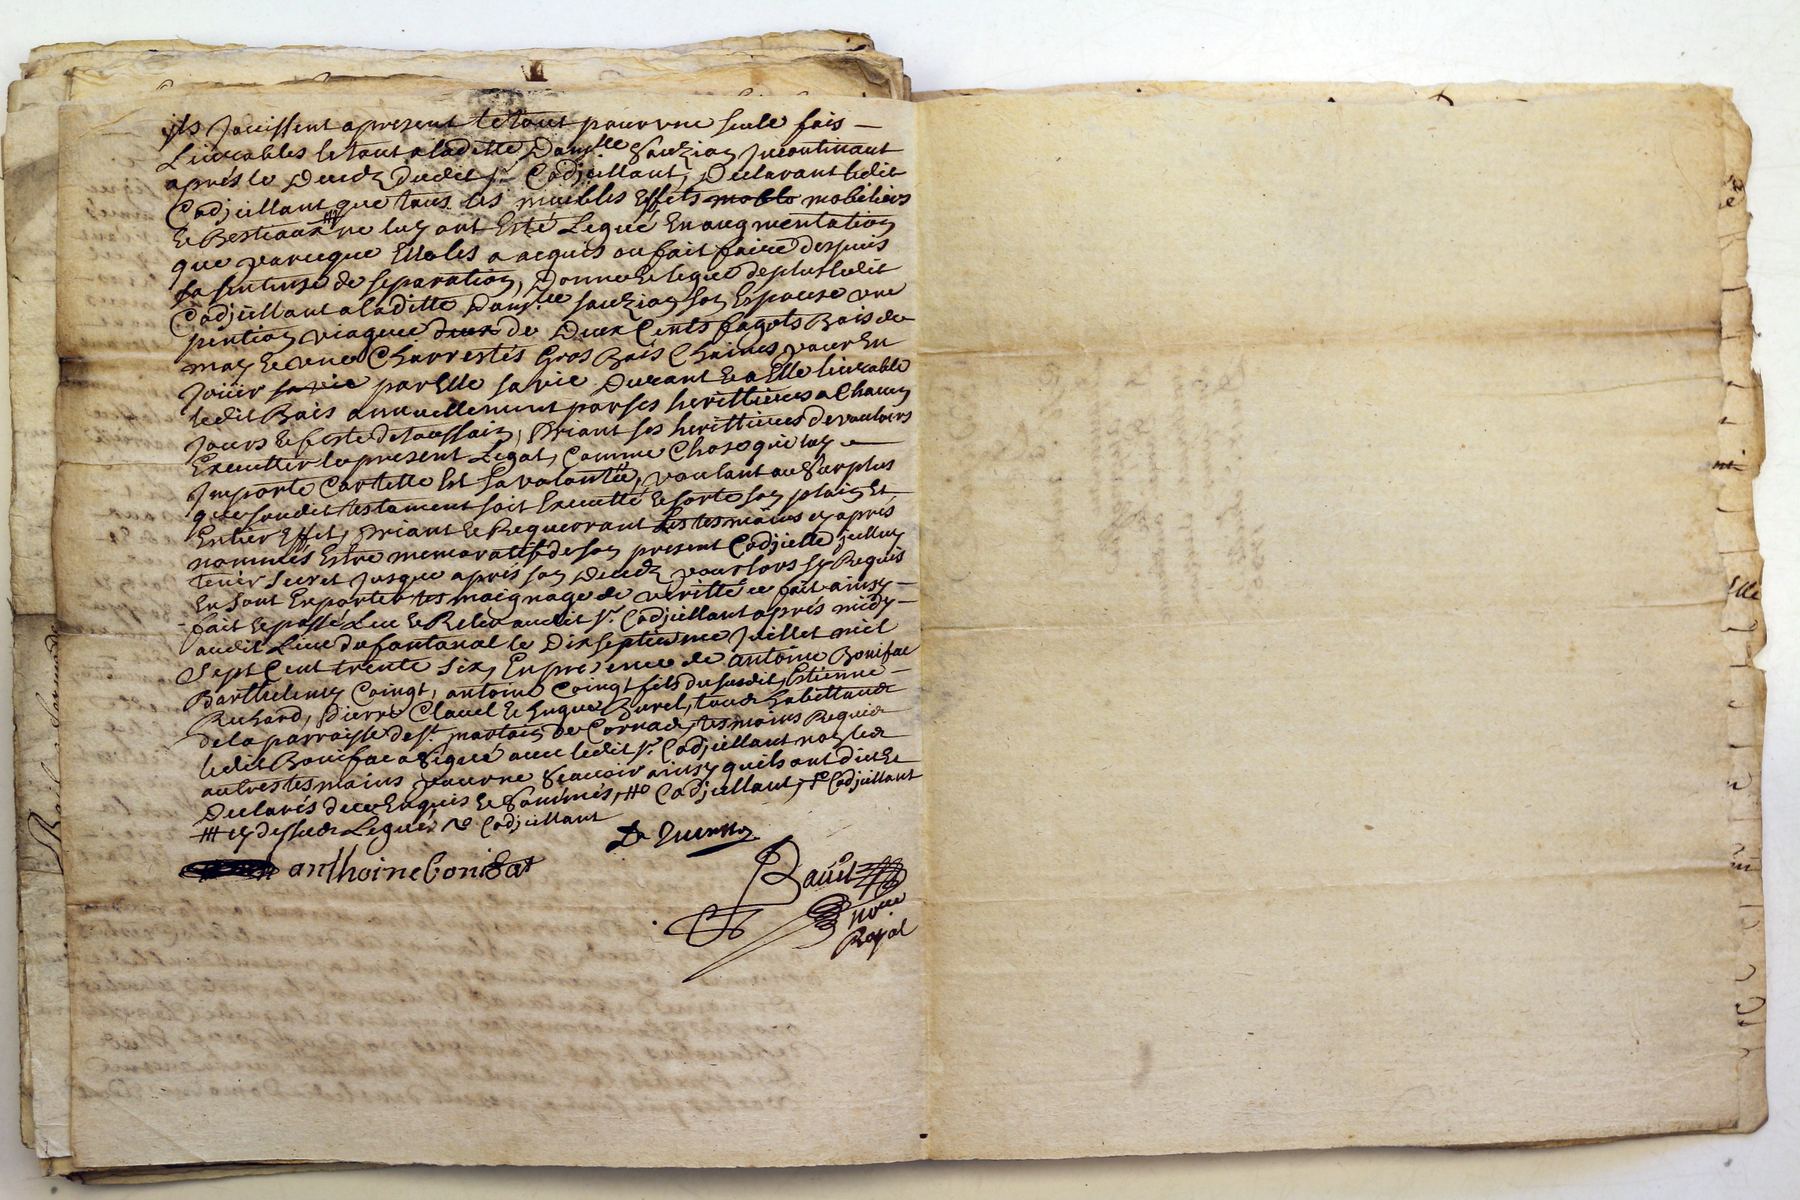 ils Jouissent apresent le tout pour une seule fois
Livrables le tout a laditte Damlle Sauzion Incontinant
aprés le Decedz dudit Sr Codjcillant, Declarant ledit
Codjcillant que tous les meubles Effets moblo mobiliers
Et Bestiaux ne luy ont Esté Legué En augmentation
que parceque Elle les a acquis ou fait faire despuis
sa sentense de separation, Donne Et legue de plus ledit
Codjcillant a laditte Damlle sauzion son Espouse une
pention viagere deux de Deux Cents fagots Bois de
may Et une Charrestés Gros Bois Chaines pour En
Joüir sa vie par Elle sa vie Durant Et a Elle livrable
ledit Bois annuellement par ses herittieres a Chacun
Jours Et feste de toussain, Priant ses herittieres de vouloirs
Executter le present Legat, Comme Chose qui luy
Importe Car telle Est sa volontée, voulant au Surplus
que sondit testament soit Executté Et sorte son plain Et
Entier Effet, Priant Et Requerant Les tesmoins cy aprés
nommés Estre memoratifs de son present Codjcille jcelluy
tenir Secret Jusque aprés son Decedz pour lors sy Requis
En sont En porter tesmoignage de veritté ce fait ainsy
fait Et passé Leu Et Releu audit Sr Codjcillant aprés midy
audit Lieu du fontanal le Dixseptieme Juillet mil
Sept Cent trente Six, En presence de antoine Bonifac
Barthelemy Coingt, antoine Coingt fils du susdit, Estienne
Richard, Pierre Clavel Et hugue Burel, tous habittants
de la parroisse de St martin De Cornas tesmoins Requis
ledit Bonifac a Signé avec ledit Sr Codjcillant non les
autres tesmoins pour ne Scavoir ainsy quils ont dit Et
Declarés de ce Enquis Et Sommés, Codjcillant, Sr Codjcillant
cy dessus Legués Codjcillant
anthoine bonifat
Bauët
nore
Royal
Elle